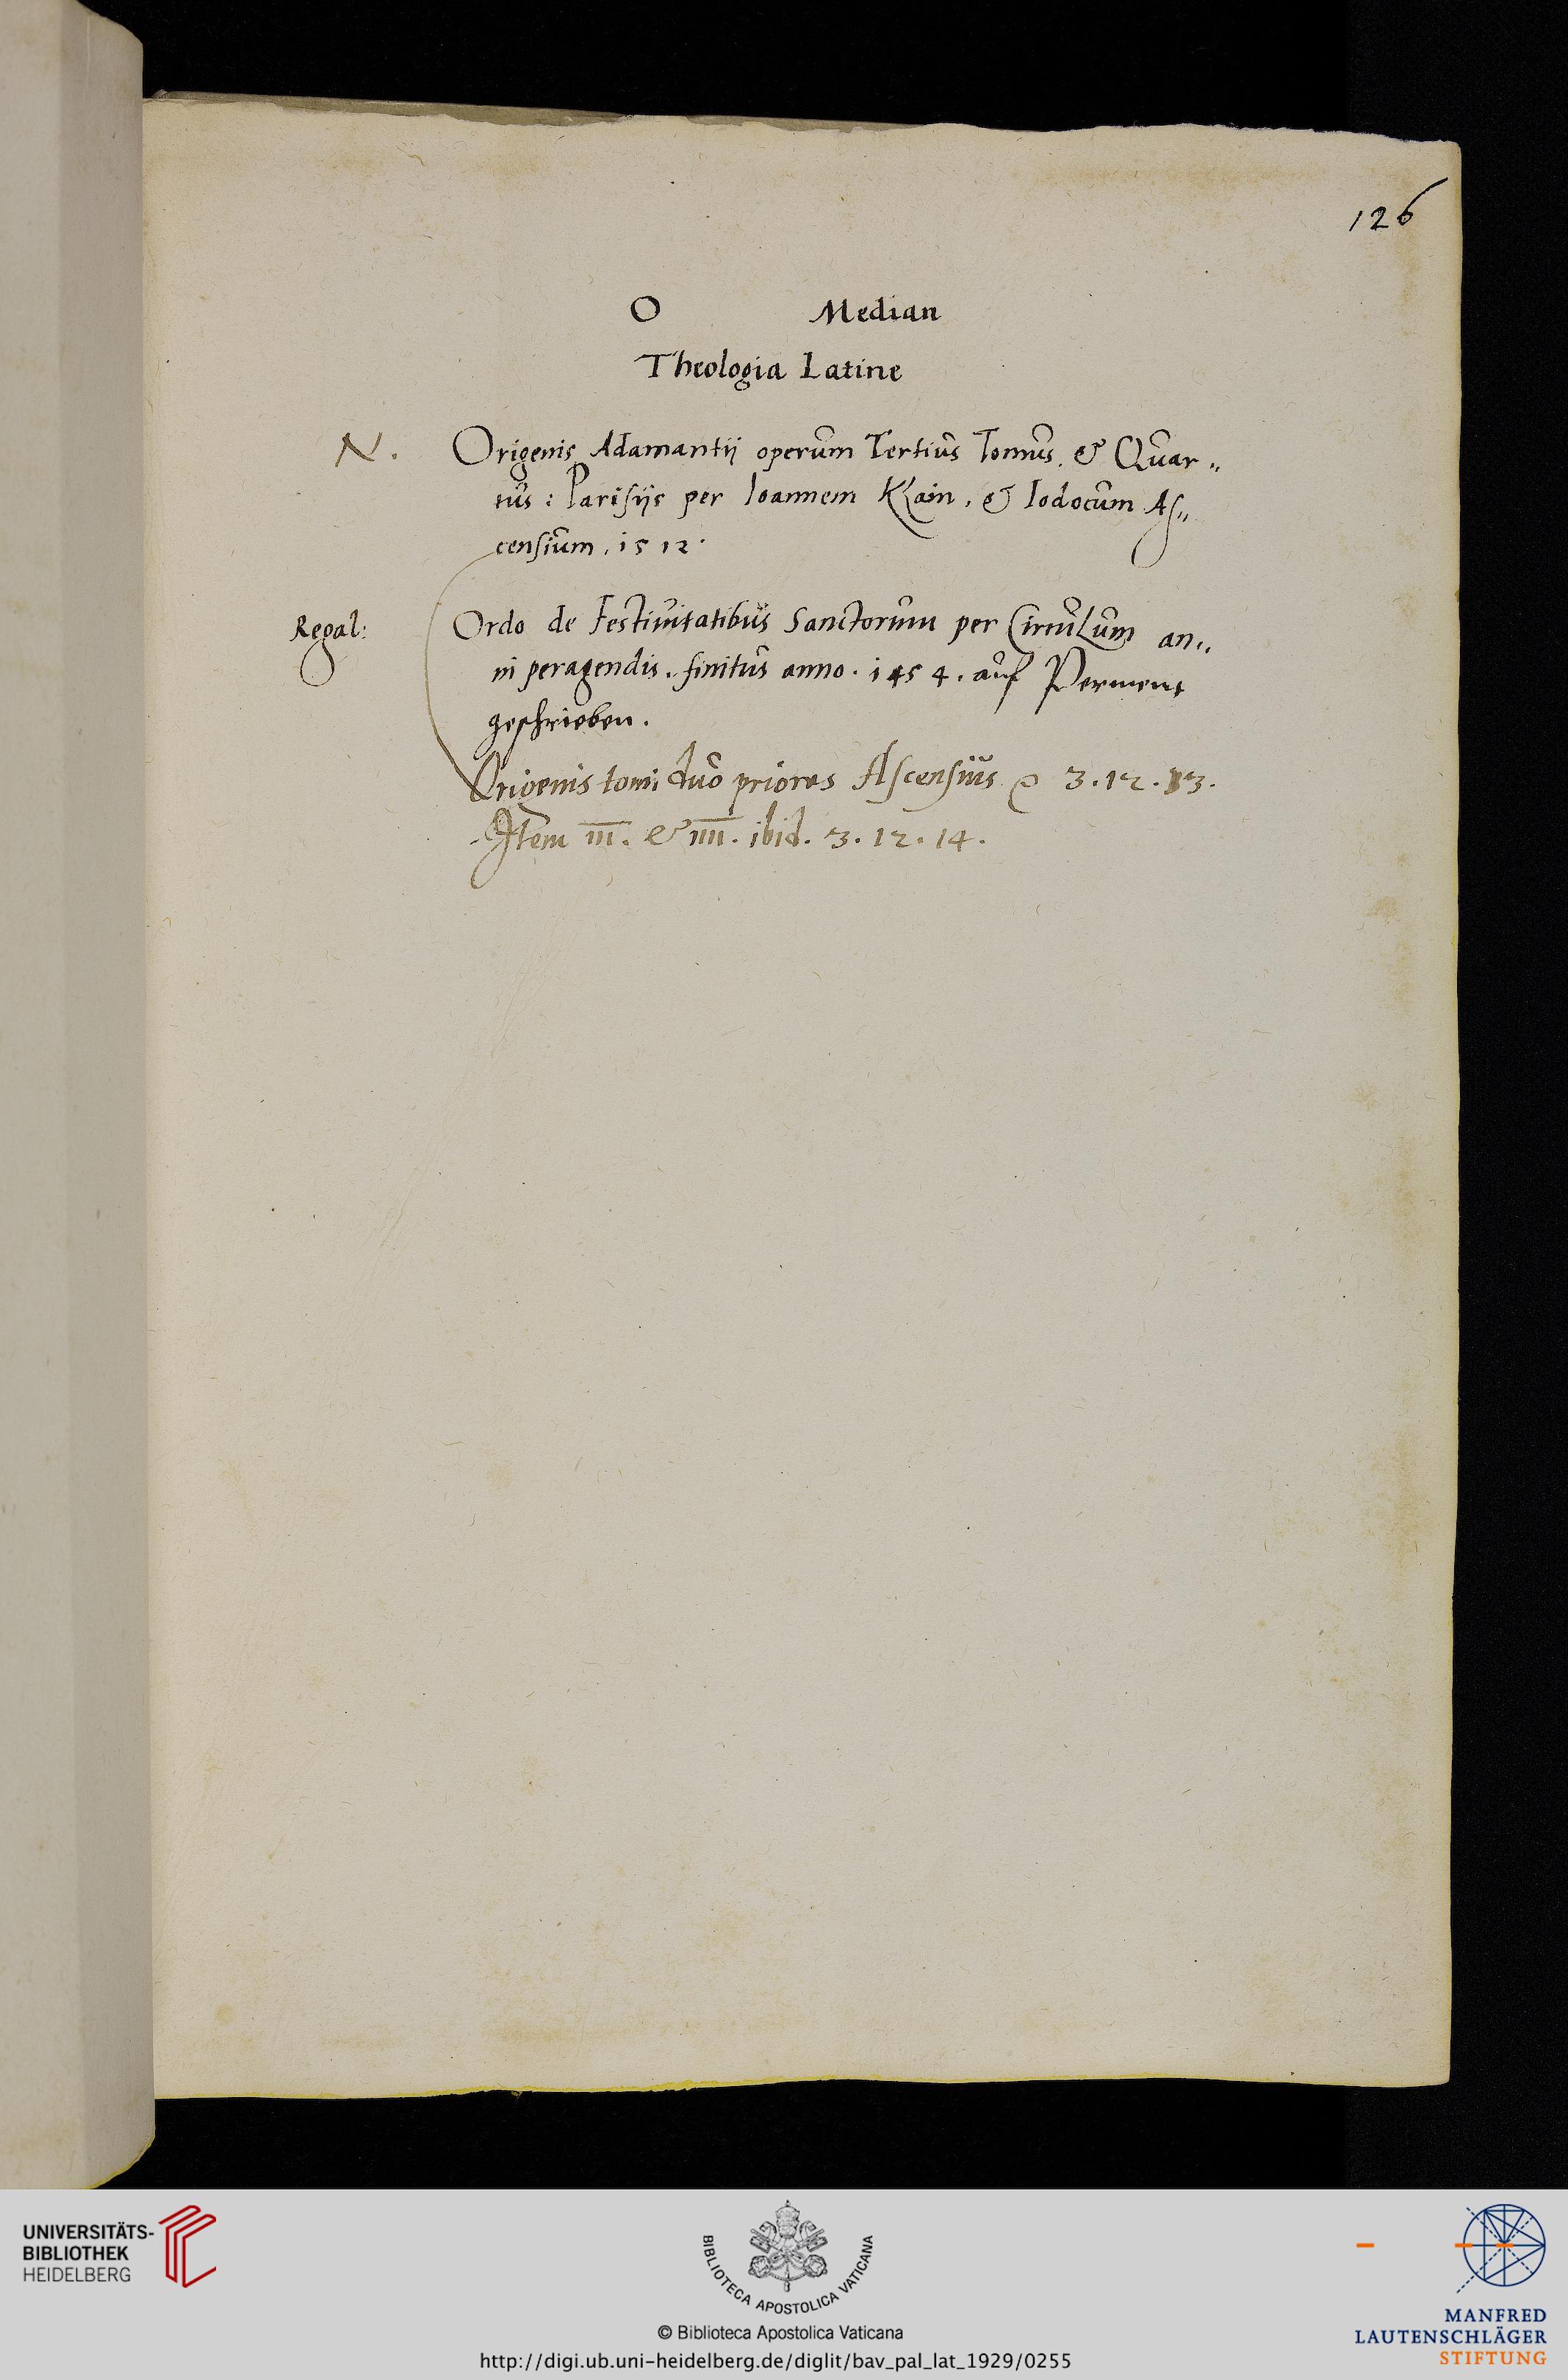 126
O Median
Theologia Latine
N. Origenis Adamantij operum Tertius Tomus. & Quar„
tus: Parisijs per Ioannem Klain, & Iodocum As„
censium. 1512.
Regal: Ordo de Festiuitatibus Sanctorum per Circulum an„
ni peragendis. finitus anno. 1454. auf Perment
geschrieben.
Origenis tomi duo priores Ascensius 3.12.13.
Item III. & IIII. ibid. 3.12.14.
UNIVERSITÄTS-
BIBLIOTHEK
HEIDELBERG
BIBLIOTECA APOSTOLICA VATICANA
© Biblioteca Apostolica Vaticana
http://digi.ub.uni-heidelberg.de/diglit/bav_pal_lat_1929/0255
MANFRED
LAUTENSCHLÄGER
STIFTUNG